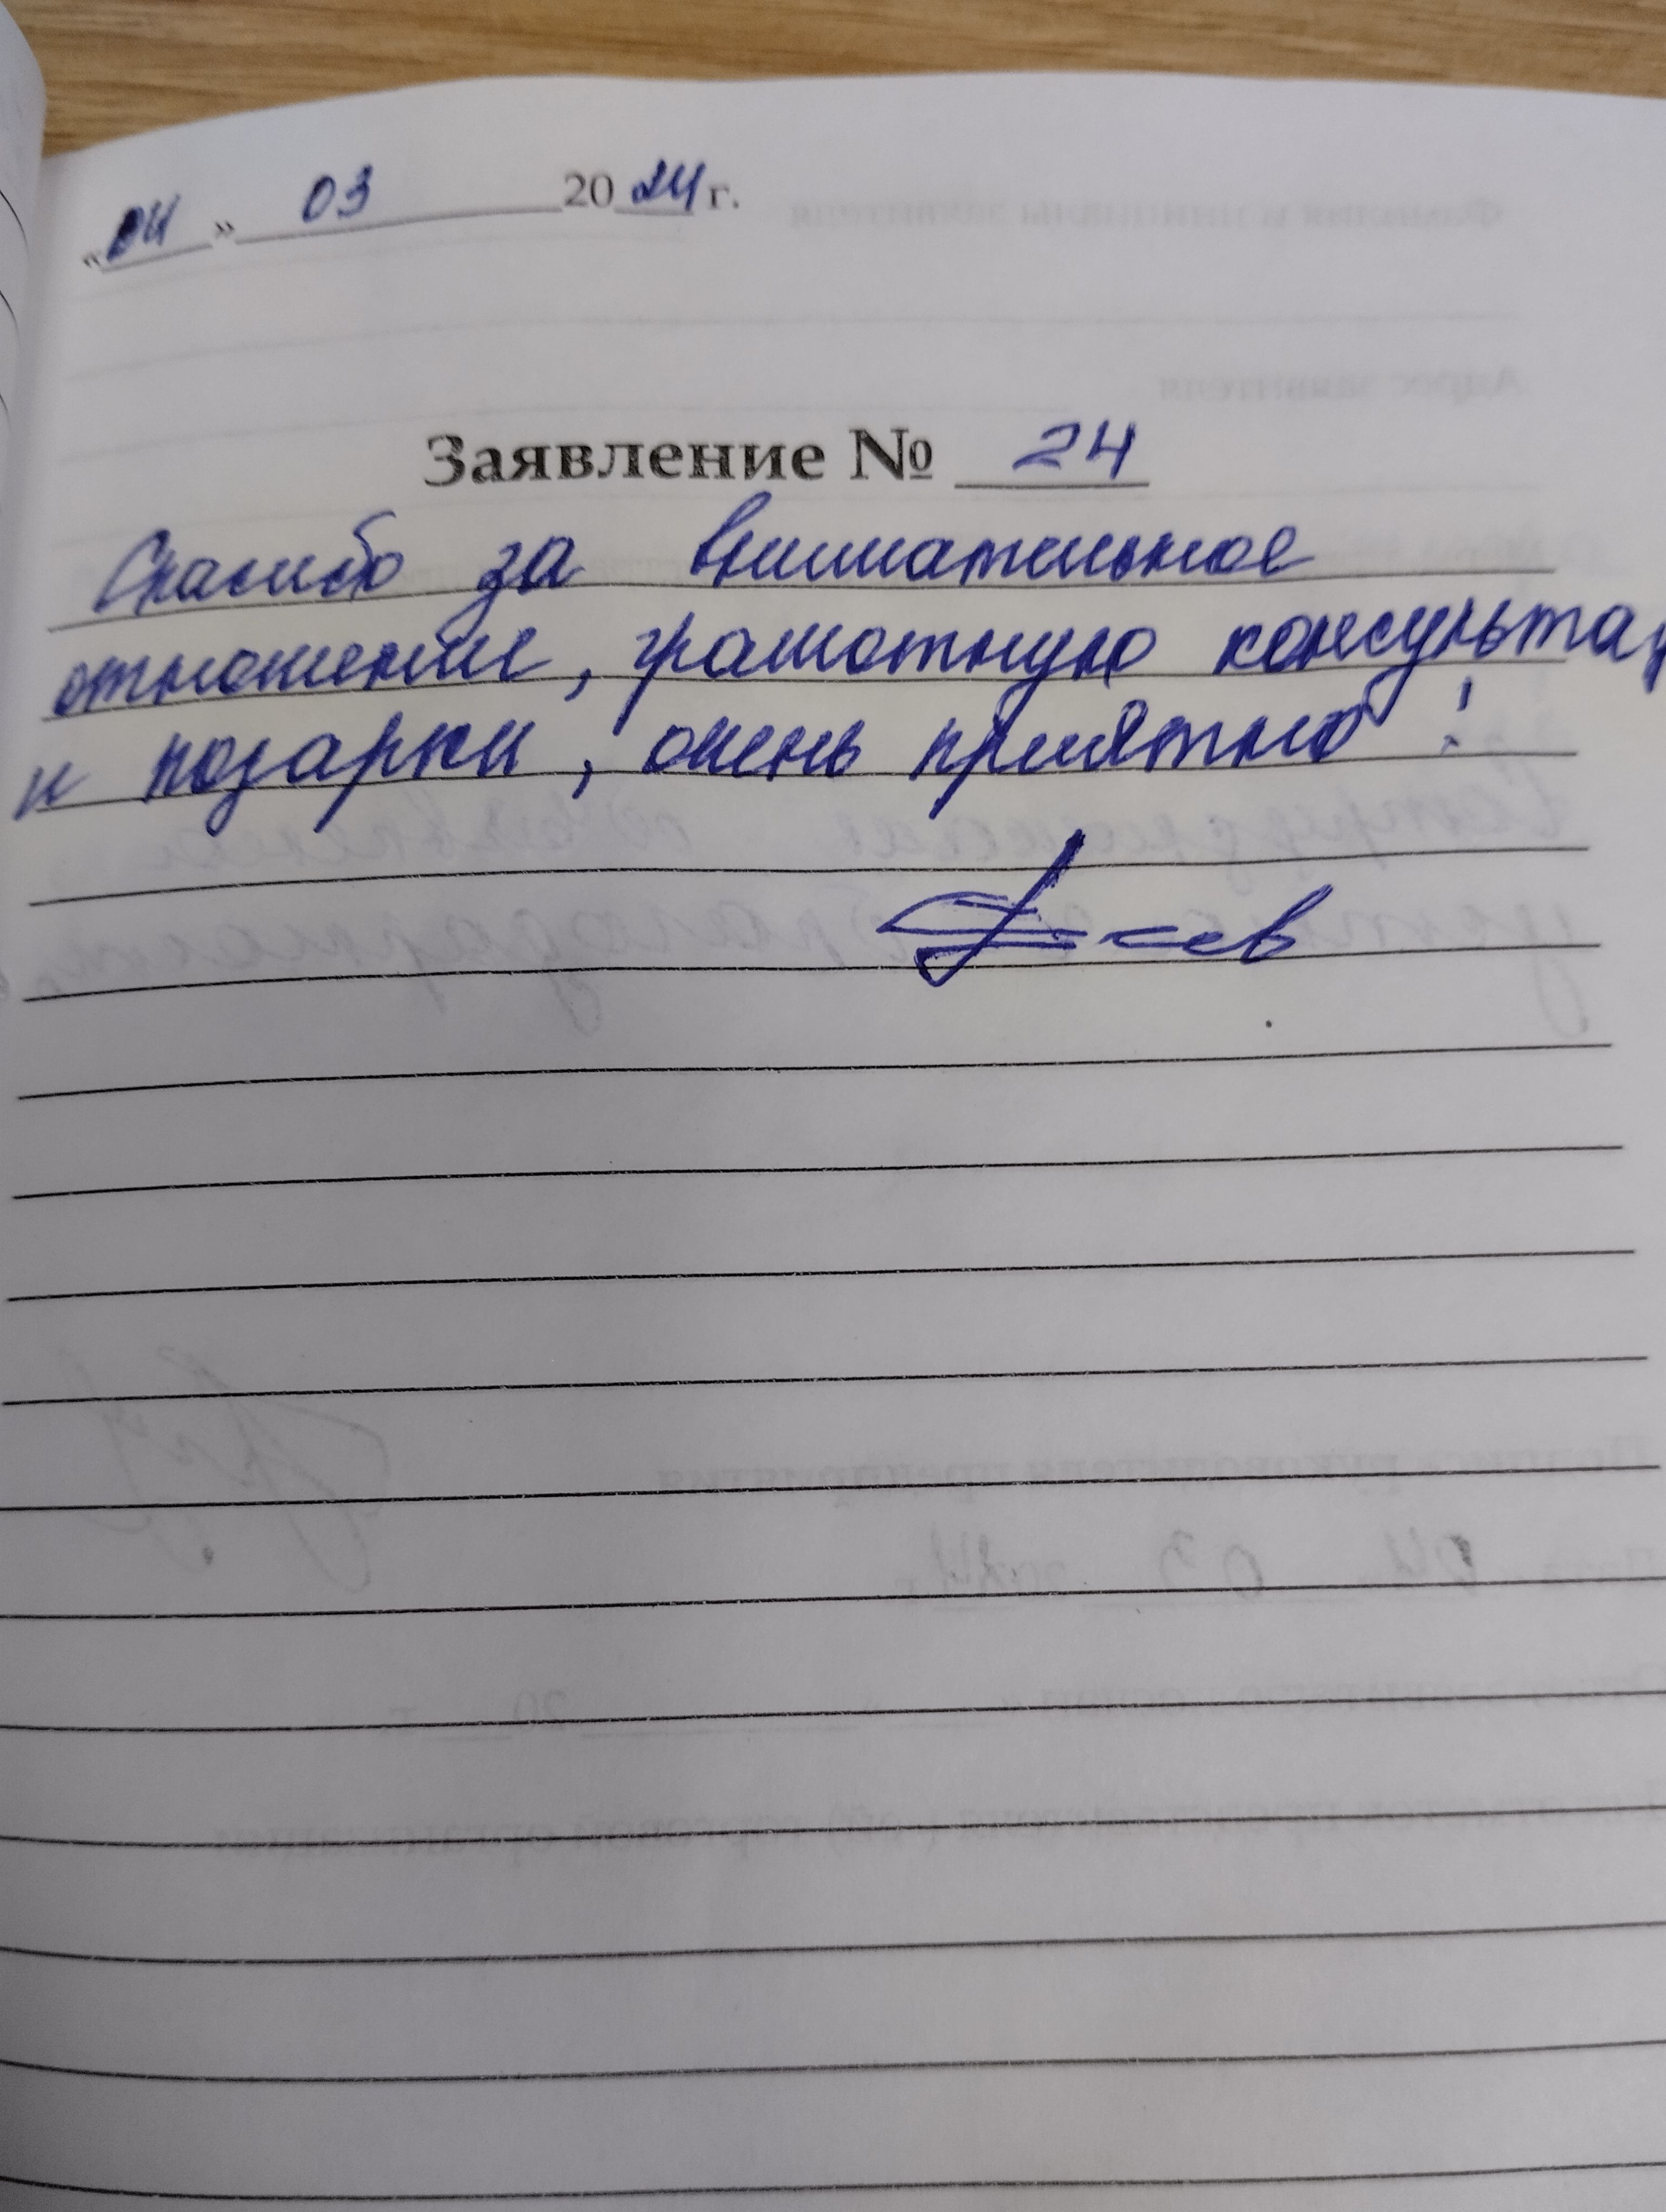 «04» 03 2024 г.
Заявление № 24
Спасибо за внимательное
отношение, грамотную консультац
и подарки, очень приятно!